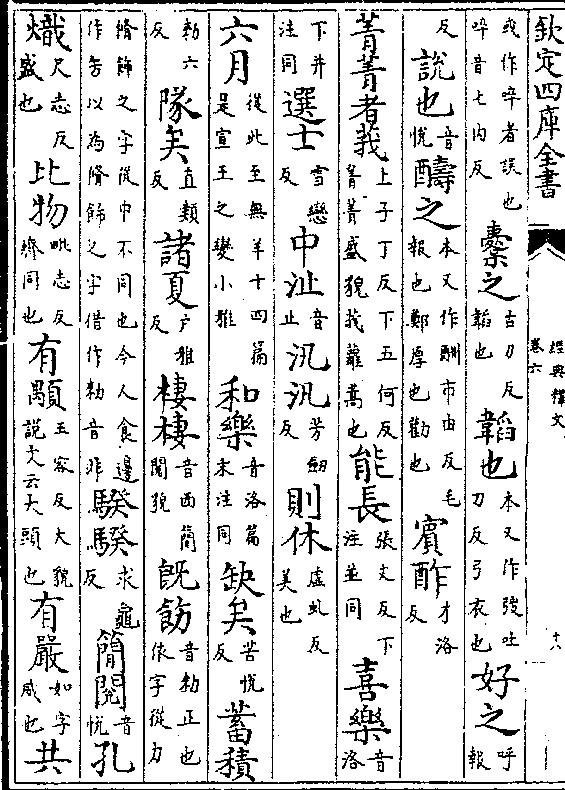 欽定四庫全書
經典釋文
卷六
十八
或作啐者誤也啐音七内反 櫜之古刀反韜也 韜也本又作弢吐刀反弓衣也 好之呼報
反 說也音悅 醻之本又作酬市由反毛報也鄭厚也勸也 賓酢才洛反
菁菁者莪上子丁反下五何反菁菁盛貌莪蘿蒿也 能長張丈反下注並同 喜樂音洛
下并注同 選士雪戀反 中沚音止 汎汎芳劒反 則休虛虬反美也
六月從此至無羊十四篇是宣王之變小雅 和樂音洛篇末注同 缺矣苦悅反 蓄積
勑六反 隊矣直類反 諸夏户雅反 棲棲音西簡閲貌 既飭音勑正也依字從力
脩飾之字從巾不同也今人食邊作芳以為脩飾之字借作勑音非 騤騤求龜反 簡閱音悅 孔
熾尺志反盛也 比物毗志反齊同也 有顒玉容反大貌說文云大頭也 有嚴如字威也 共